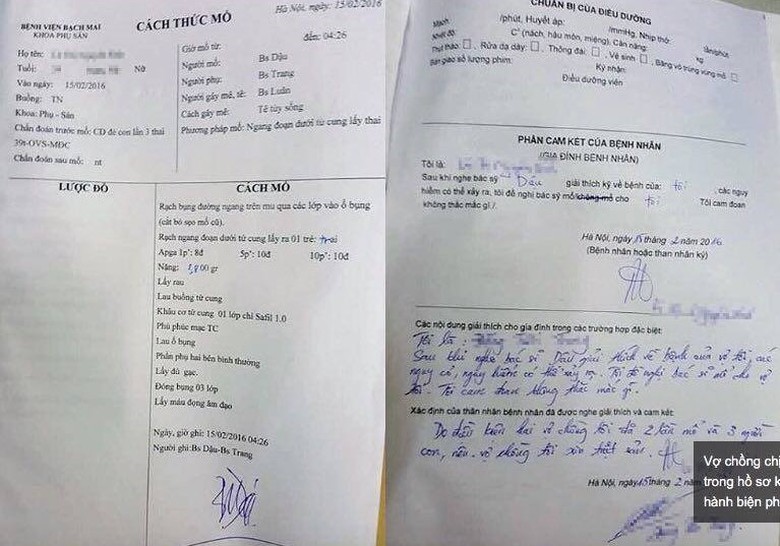 BỆNH VIỆN BẠCH MAI
KHOA PHỤ SẢN
CÁCH THỨC MỔ
Hà Nội, ngày: 15/02/2016
Họ tên:
Tuổi: Nữ
Vào ngày: 15/02/2016
Buồng: TN
Khoa: Phụ - Sản
Chẩn đoán trước mổ: CD đẻ con lần 3 thai
39t-OVS-MĐC
Chẩn đoán sau mổ: nt
Giờ mổ từ: đến: 04:26
Người mổ: Bs Dậu
Người phụ: Bs Trang
Người gây mê, tê: Bs Luân
Cách gây mê: Tê tủy sống
Phương pháp mổ: Ngang đoạn dưới tử cung lấy thai
LƯỢC ĐỒ
CÁCH MỔ
Rạch bụng đường ngang trên mu qua các lớp vào ổ bụng
(cắt bỏ sẹo mổ cũ).
Rạch ngang đoạn dưới tử cung lấy ra 01 trẻ: trai
Apga 1p': 8đ 5p': 10đ 10p': 10đ
Nặng: gr
Lấy rau
Lau buồng tử cung
Khâu cơ tử cung 01 lớp chỉ Safil 1.0
Phủ phúc mạc TC
Lau ổ bụng
Phần phụ hai bên bình thường
Lấy đủ gạc.
Đóng bụng 03 lớp
Lấy máu đọng âm đạo
Ngày, giờ ghi: 15/02/2016 04:26
Người ghi:Bs Dậu-Bs Trang
CHUẨN BỊ CỦA ĐIỀU DƯỠNG
Mạch /phút, Huyết áp: /mmHg, Nhịp thở: lần/phút
Nhiệt độ: C° (nách, hậu môn, miệng), Cân nặng: kg
Thụt tháo: , Rửa dạ dày: , Thông đái: , Vệ sinh , Băng vô trùng vùng mổ
Bàn giao số lượng phim: Ký nhận:
Điều dưỡng viên
PHẦN CAM KẾT CỦA BỆNH NHÂN
(GIA ĐÌNH BỆNH NHÂN)
Tôi là:
Sau khi nghe bác sỹ Dậu giải thích kỹ về bệnh của: tôi , các nguy
hiểm có thể xảy ra, tôi đề nghị bác sỹ mổ/không mổ cho tôi Tôi cam đoan
không thắc mắc gì /.
Hà Nội, ngày 15 tháng 2 năm 2016
(Bệnh nhân hoặc thân nhân ký)
Các nội dung giải thích cho gia đình trong các trường hợp đặc biệt:
Tôi là :
Sau khi nghe bác sĩ Dậu giải thích về bệnh của vợ tôi, các
nguy cơ, nguy hiểm có thể xảy ra. Tôi đề nghị bác sĩ mổ cho vợ
tôi. Tôi cam đoan không thắc mắc gì.
Xác định của thân nhân bệnh nhân đã được nghe giải thích và cam kết:
Do điều kiện hai vợ chồng tôi đã 2 lần mổ và 3 người
con, nên vợ chồng tôi xin triệt sản.
Hà Nội, ngày 15 tháng 2 năm
Vợ chồng chị
trong hồ sơ k
hành biện ph